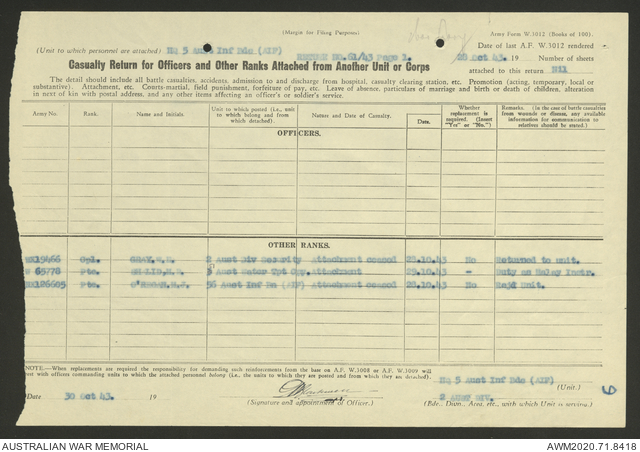 (Margin for Filing Purposes)
Army Form W.3012 (Books of 100).
(Unit to which personnel are attached) HQ 5 Aust Inf Bde (AIF)
RETURN No.51/43 Page 1.
Date of last A.F. W.3012 rendered
Casualty Return for Officers and Other Ranks Attached from Another Unit or Corps
Oct 43. 19 Number of sheets
attached to this return Nil
The detail should include all battle casualties, accidents, admission to and discharge from hospital, casualty clearing station, etc. Promotion (acting, temporary, local or
substantive). Attachment, etc. Courts-martial, field punishment, forfeiture of pay, etc. Leave of absence, particulars of marriage and birth or death of children, alteration
in next of kin with postal address, and any other items affecting an officer's or soldier's service.
Army No. Rank. Name and Initials Unit to which posted (i.e., unit to which belong and from which detached). Nature and Date of Casualty. Date. Whether replacement is required. (Insert "Yes" or "No.") Remarks. (In the case of battle casualties from wounds or disease, any available information for communication to relatives should be stated.)
OFFICERS.
OTHER RANKS.
15466 Cpl. GRAY, 2 Aust Div Security Attachment cancel 23.10.43 No Returned to unit.
65778 Pte. 3 Aust Water Tpt Attachment .10.43 - Duty as Malay Instr.
126605 Pte. 36 Aust Inf Bn (AIF) Attachment cancel .10.43 No Unit.
NOTE.—When replacements are required the responsibility for demanding such reinforcements from the base on A.F. W.3008 or A.F. W.3009 will
rest with officers commanding units to which the attached personnel belong (i.e., the units to which they are posted and from which they are detached).
HQ 5 Aust Inf Bde (AIF)
(Unit.)
Date 30 Oct 43. 19
(Signature and appointment of Officer.)
2 AUST DIV.
(Bde., Divn., Area, etc., with which Unit is serving.)
9
AUSTRALIAN WAR MEMORIAL
AWM2020.71.8418